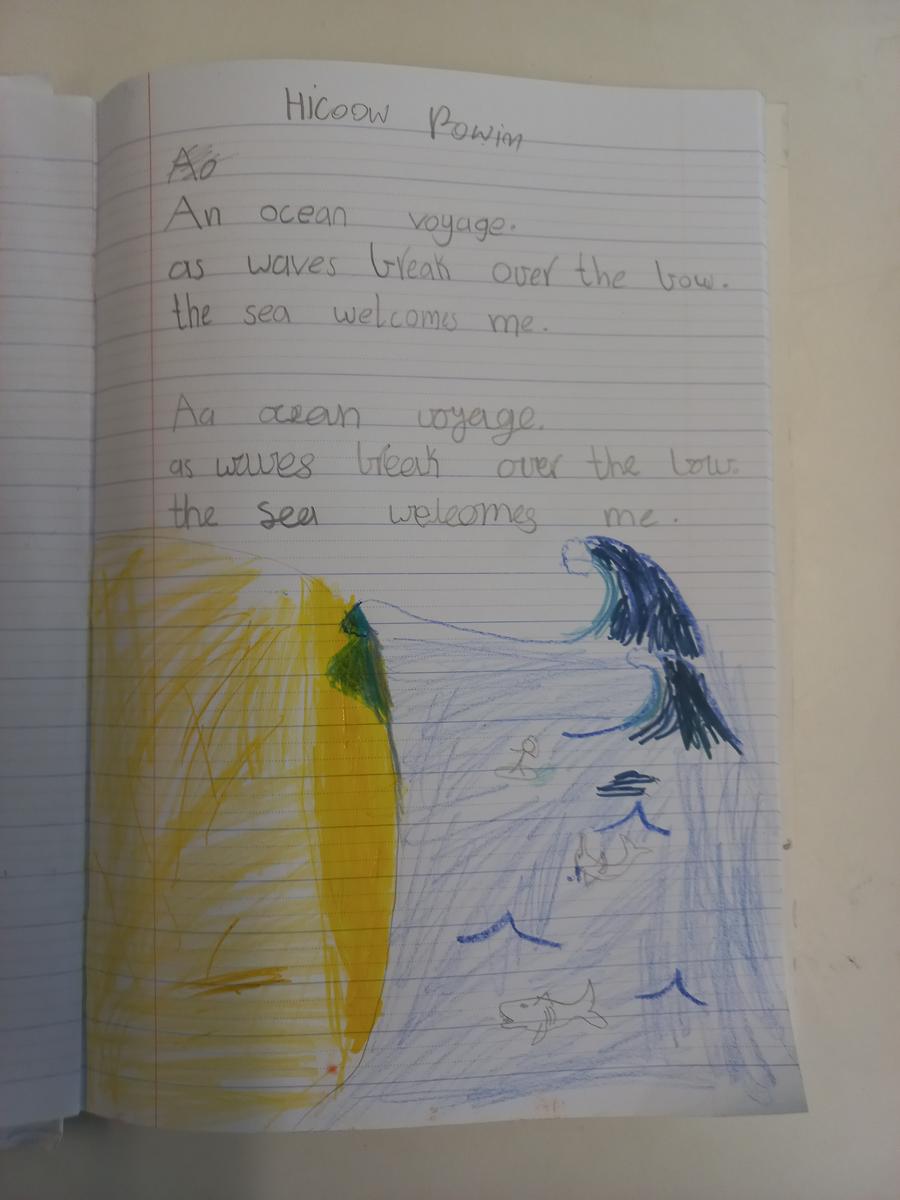 Hicoow Powim
An ocean voyage.
as waves break over the bow.
the sea welcomes me.
Aa ocean voyage.
as waves break over the bow.
the sea welcomes me.